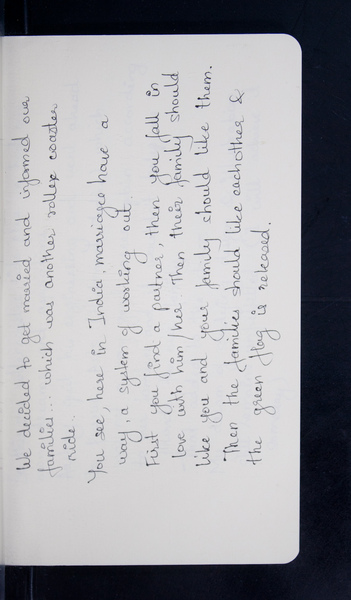 We decided to get married and informed our
families... which was another roller coaster
ride.
You see, here in India, marriages have a
way, a system of working out.
First you find a partner, then you fall in
love with him/her. Then their family should
like you and your family should like them.
Then the families should like eachother &
the green flag is released.